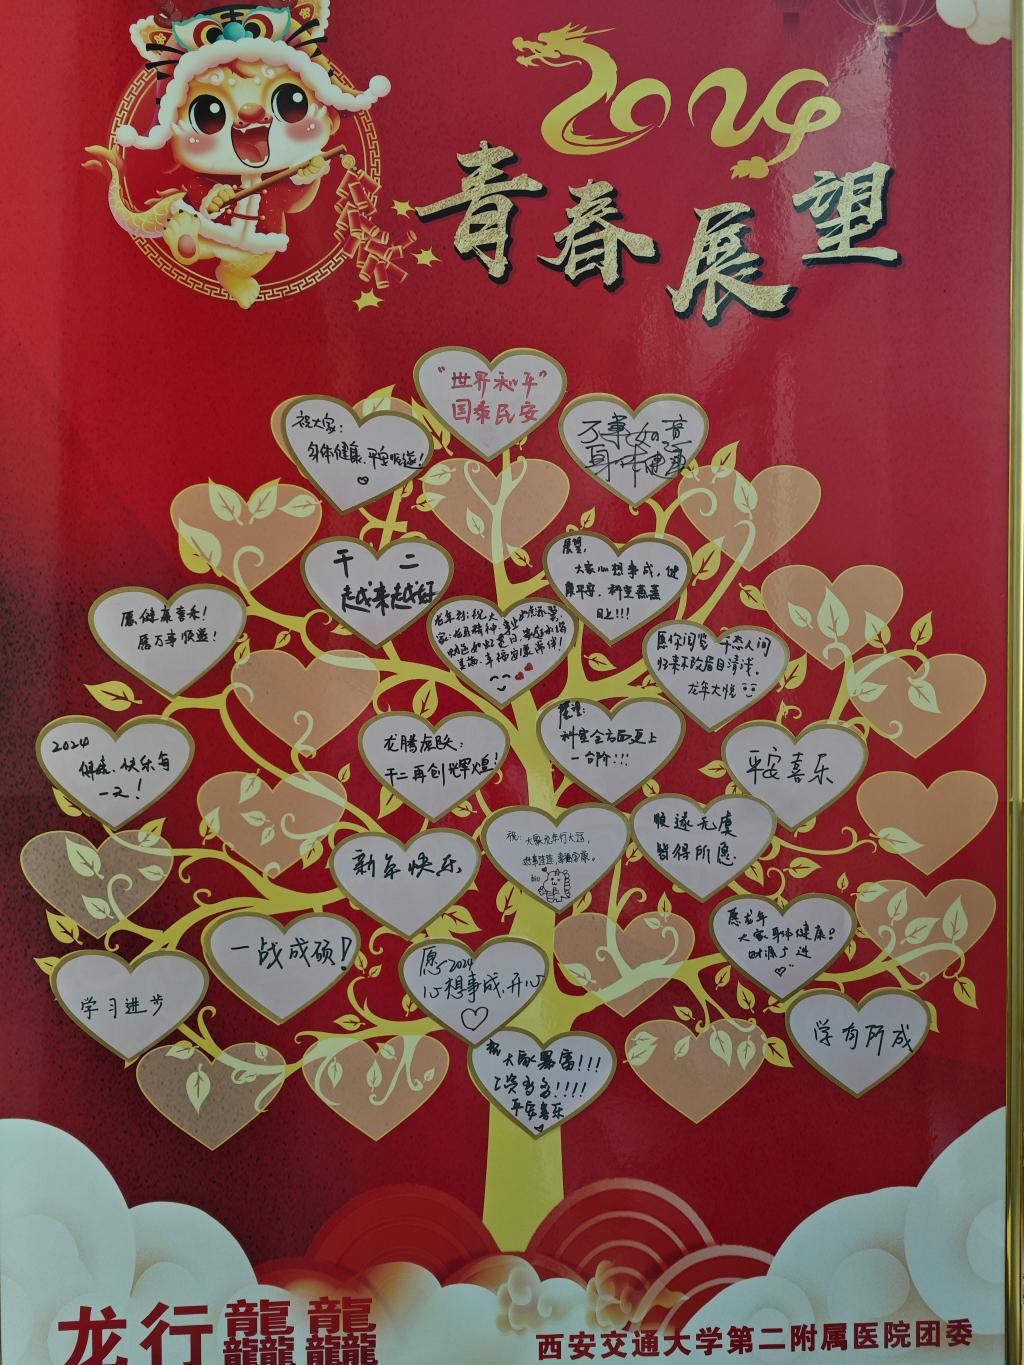 2024
青春展望
"世界和平"
国泰民安
祝大家：
身体健康、平安顺遂！
万事如意
身体健康
干二
越来越好
展望：
大家心想事成，健
康平安，科室蒸蒸
日上!!!
愿健康喜乐！
愿万事顺遂！
龙年到：祝大
愿你阅览千态人间
归来不改眉目清浅。
龙年大悦
2024
健康、快乐每
一天！
龙腾虎跃：
干二再创辉煌！
展望：
科室全方面更上
一台阶!!!
平安喜乐
新年快乐
祝：大家龙年行大运，
顺遂无虞
皆得所愿
一战成硕！
愿2024
心想事成、开心
愿龙年
大家身体健康？
财源广进
学习进步
学有所成
祝
大家暴富!!!
工资多多!!!!
平安喜乐
龙行龘龘
西安交通大学第二附属医院团委